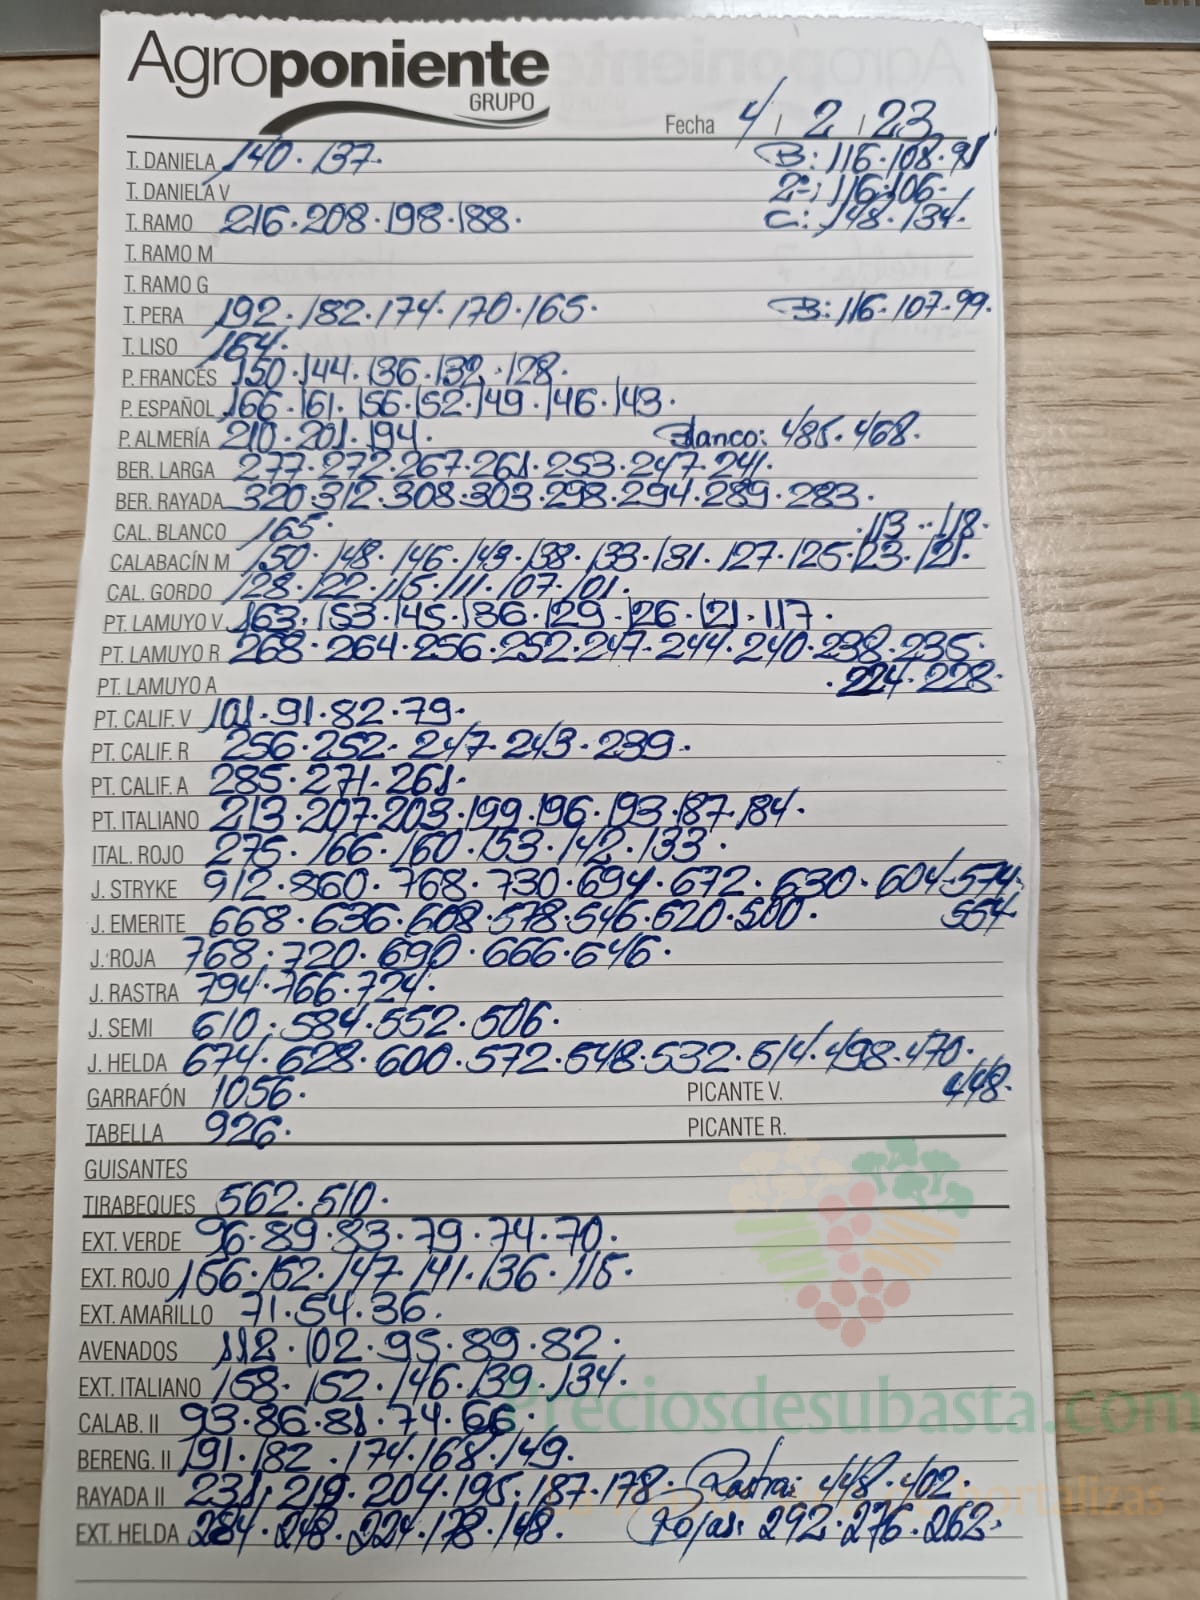 Agroponiente
GRUPO
Fecha 4 / 2 / 23
T. DANIELA 140 · 137 · B: 116 · 108 · 91
T. DANIELA V 2ª: 116 · 106 ·
T. RAMO 216 · 208 · 198 · 188 · C: 148 · 134 ·
T. RAMO M
T. RAMO G
T. PERA 192 · 182 · 174 · 170 · 165 · B: 116 · 107 · 99 ·
T. LISO 164 ·
P. FRANCÉS 150 · 144 · 136 · 132 · 128 ·
P. ESPAÑOL 166 · 161 · 156 · 152 · 149 · 146 · 143 ·
P. ALMERÍA 210 · 201 · 194 · Blanco: 485 · 468 ·
BER. LARGA 277 · 272 · 267 · 261 · 253 · 247 · 241 ·
BER. RAYADA 320 · 312 · 308 · 303 · 298 · 294 · 289 · 283 ·
CAL. BLANCO 165 · · 113 · 118 ·
CALABACÍN M 150 · 148 · 146 · 143 · 138 · 133 · 131 · 127 · 125 · 123 · 121 ·
CAL. GORDO 128 · 122 · 115 · 111 · 107 · 101 ·
PT. LAMUYO V 163 · 153 · 145 · 136 · 129 · 126 · 121 · 117 ·
PT. LAMUYO R 268 · 264 · 256 · 252 · 247 · 244 · 240 · 238 · 235 ·
PT. LAMUYO A · 224 · 228 ·
PT. CALIF. V 101 · 91 · 82 · 79 ·
PT. CALIF. R 256 · 252 · 247 · 243 · 239 ·
PT. CALIF. A 285 · 271 · 261 ·
PT. ITALIANO 213 · 207 · 203 · 199 · 196 · 193 · 187 · 184 ·
ITAL. ROJO 275 · 166 · 160 · 153 · 142 · 133 ·
J. STRYKE 912 · 860 · 768 · 730 · 694 · 672 · 630 · 604 · 574 ·
J. EMERITE 668 · 636 · 608 · 578 · 546 · 620 · 500 · 554
J. ROJA 768 · 720 · 690 · 666 · 646 ·
J. RASTRA 794 · 766 · 724 ·
J. SEMI 610 · 584 · 552 · 506 ·
J. HELDA 674 · 628 · 600 · 572 · 548 · 532 · 514 · 498 · 470 ·
GARRAFÓN 1056 · PICANTE V. 448 ·
TABELLA 926 · PICANTE R.
GUISANTES
TIRABEQUES 562 · 510 ·
EXT. VERDE 96 · 89 · 83 · 79 · 74 · 70 ·
EXT. ROJO 156 · 152 · 147 · 141 · 136 · 115 ·
EXT. AMARILLO 71 · 54 · 36 ·
AVENADOS 112 · 102 · 95 · 89 · 82 ·
EXT. ITALIANO 158 · 152 · 146 · 139 · 134 ·
Preciosdesubasta.com
CALAB. II 93 · 86 · 81 · 74 · 66 ·
BERENG. II 191 · 182 · 174 · 168 · 149 ·
RAYADA II 231 · 219 · 204 · 195 · 187 · 178 · Rastra: 448 · 402 ·
EXT. HELDA 284 · 248 · 224 · 178 · 148 · Rojas: 292 · 276 · 262 ·